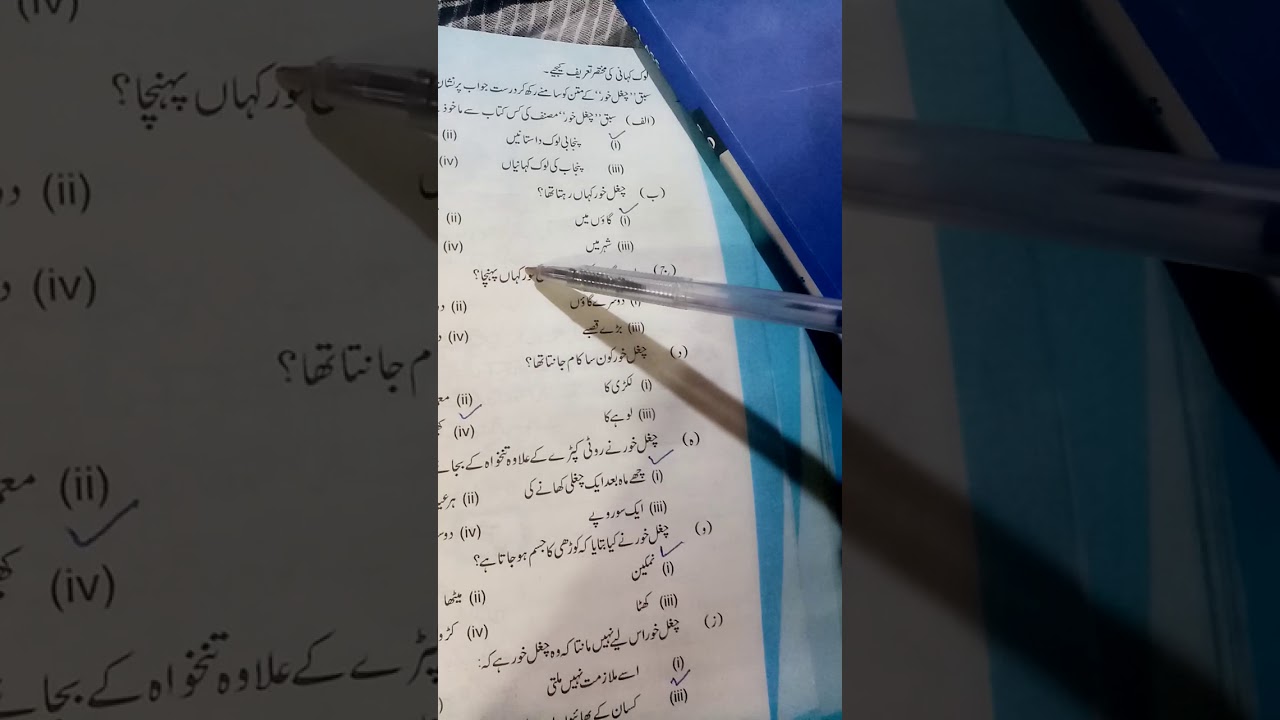 لوک کہانی کی مختصر تعریف کیجیے۔
سبق "چغل خور" کے متن کو سامنے رکھ کر درست جواب پر نشان
(الف) سبق "چغل خور" مصنف کی کس کتاب سے ماخوذ
(i) پنجابی لوک داستانیں (ii)
(iii) پنجاب کی لوک کہانیاں (iv)
(ب) چغل خور کہاں رہتا تھا؟
(i) گاؤں میں (ii)
(iii) شہر میں (iv)
(ج) کہاں پہنچا؟
(i) دوسرے گاؤں (ii)
(iii) بڑے قصبے (iv)
(د) چغل خور کون سا کام جانتا تھا؟
(i) لکڑی کا (ii)
(iii) لوہے کا (iv)
(ہ) چغل خور نے روٹی کپڑے کے علاوہ تنخواہ کے بجائے
(i) چھے ماہ بعد ایک چغلی کھانے کی (ii)
(iii) ایک سو روپے (iv)
(و) چغل خور نے کیا بتایا کہ کوڑھی کا جسم ہو جاتا ہے؟
(i) نمکین (ii) میٹھا
(iii) کھٹا (iv)
(ز) چغل خور اس لیے نہیں مانتا کہ وہ چغل خور ہے کہ:
(i) اسے ملازمت نہیں ملتی
(iii) کسان کے